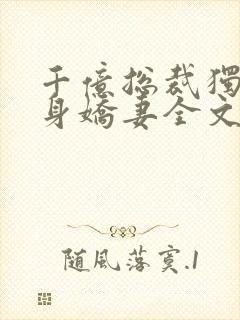 千億總裁獨
身嬌妻全文
随風落寞.1